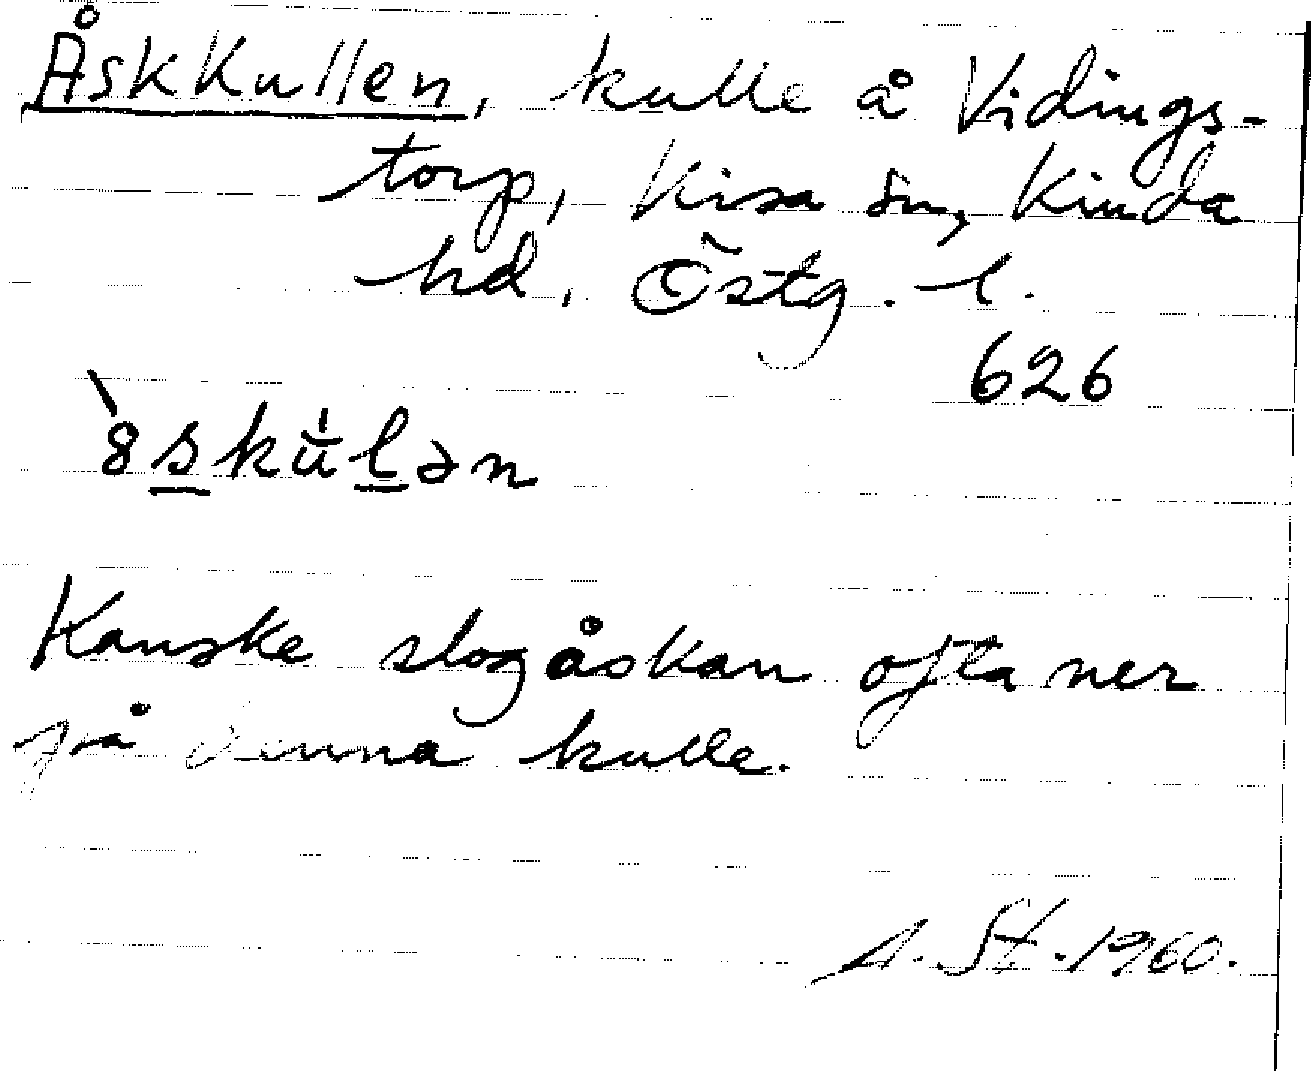 Åskkullen, kulle å Vidings-
torp, Kisa sn, Kinda
hd, Östg. l.
626
`8skù̈lən
Kanske slog åskan ofta ner
på denna kulle.
A. St. 1960.